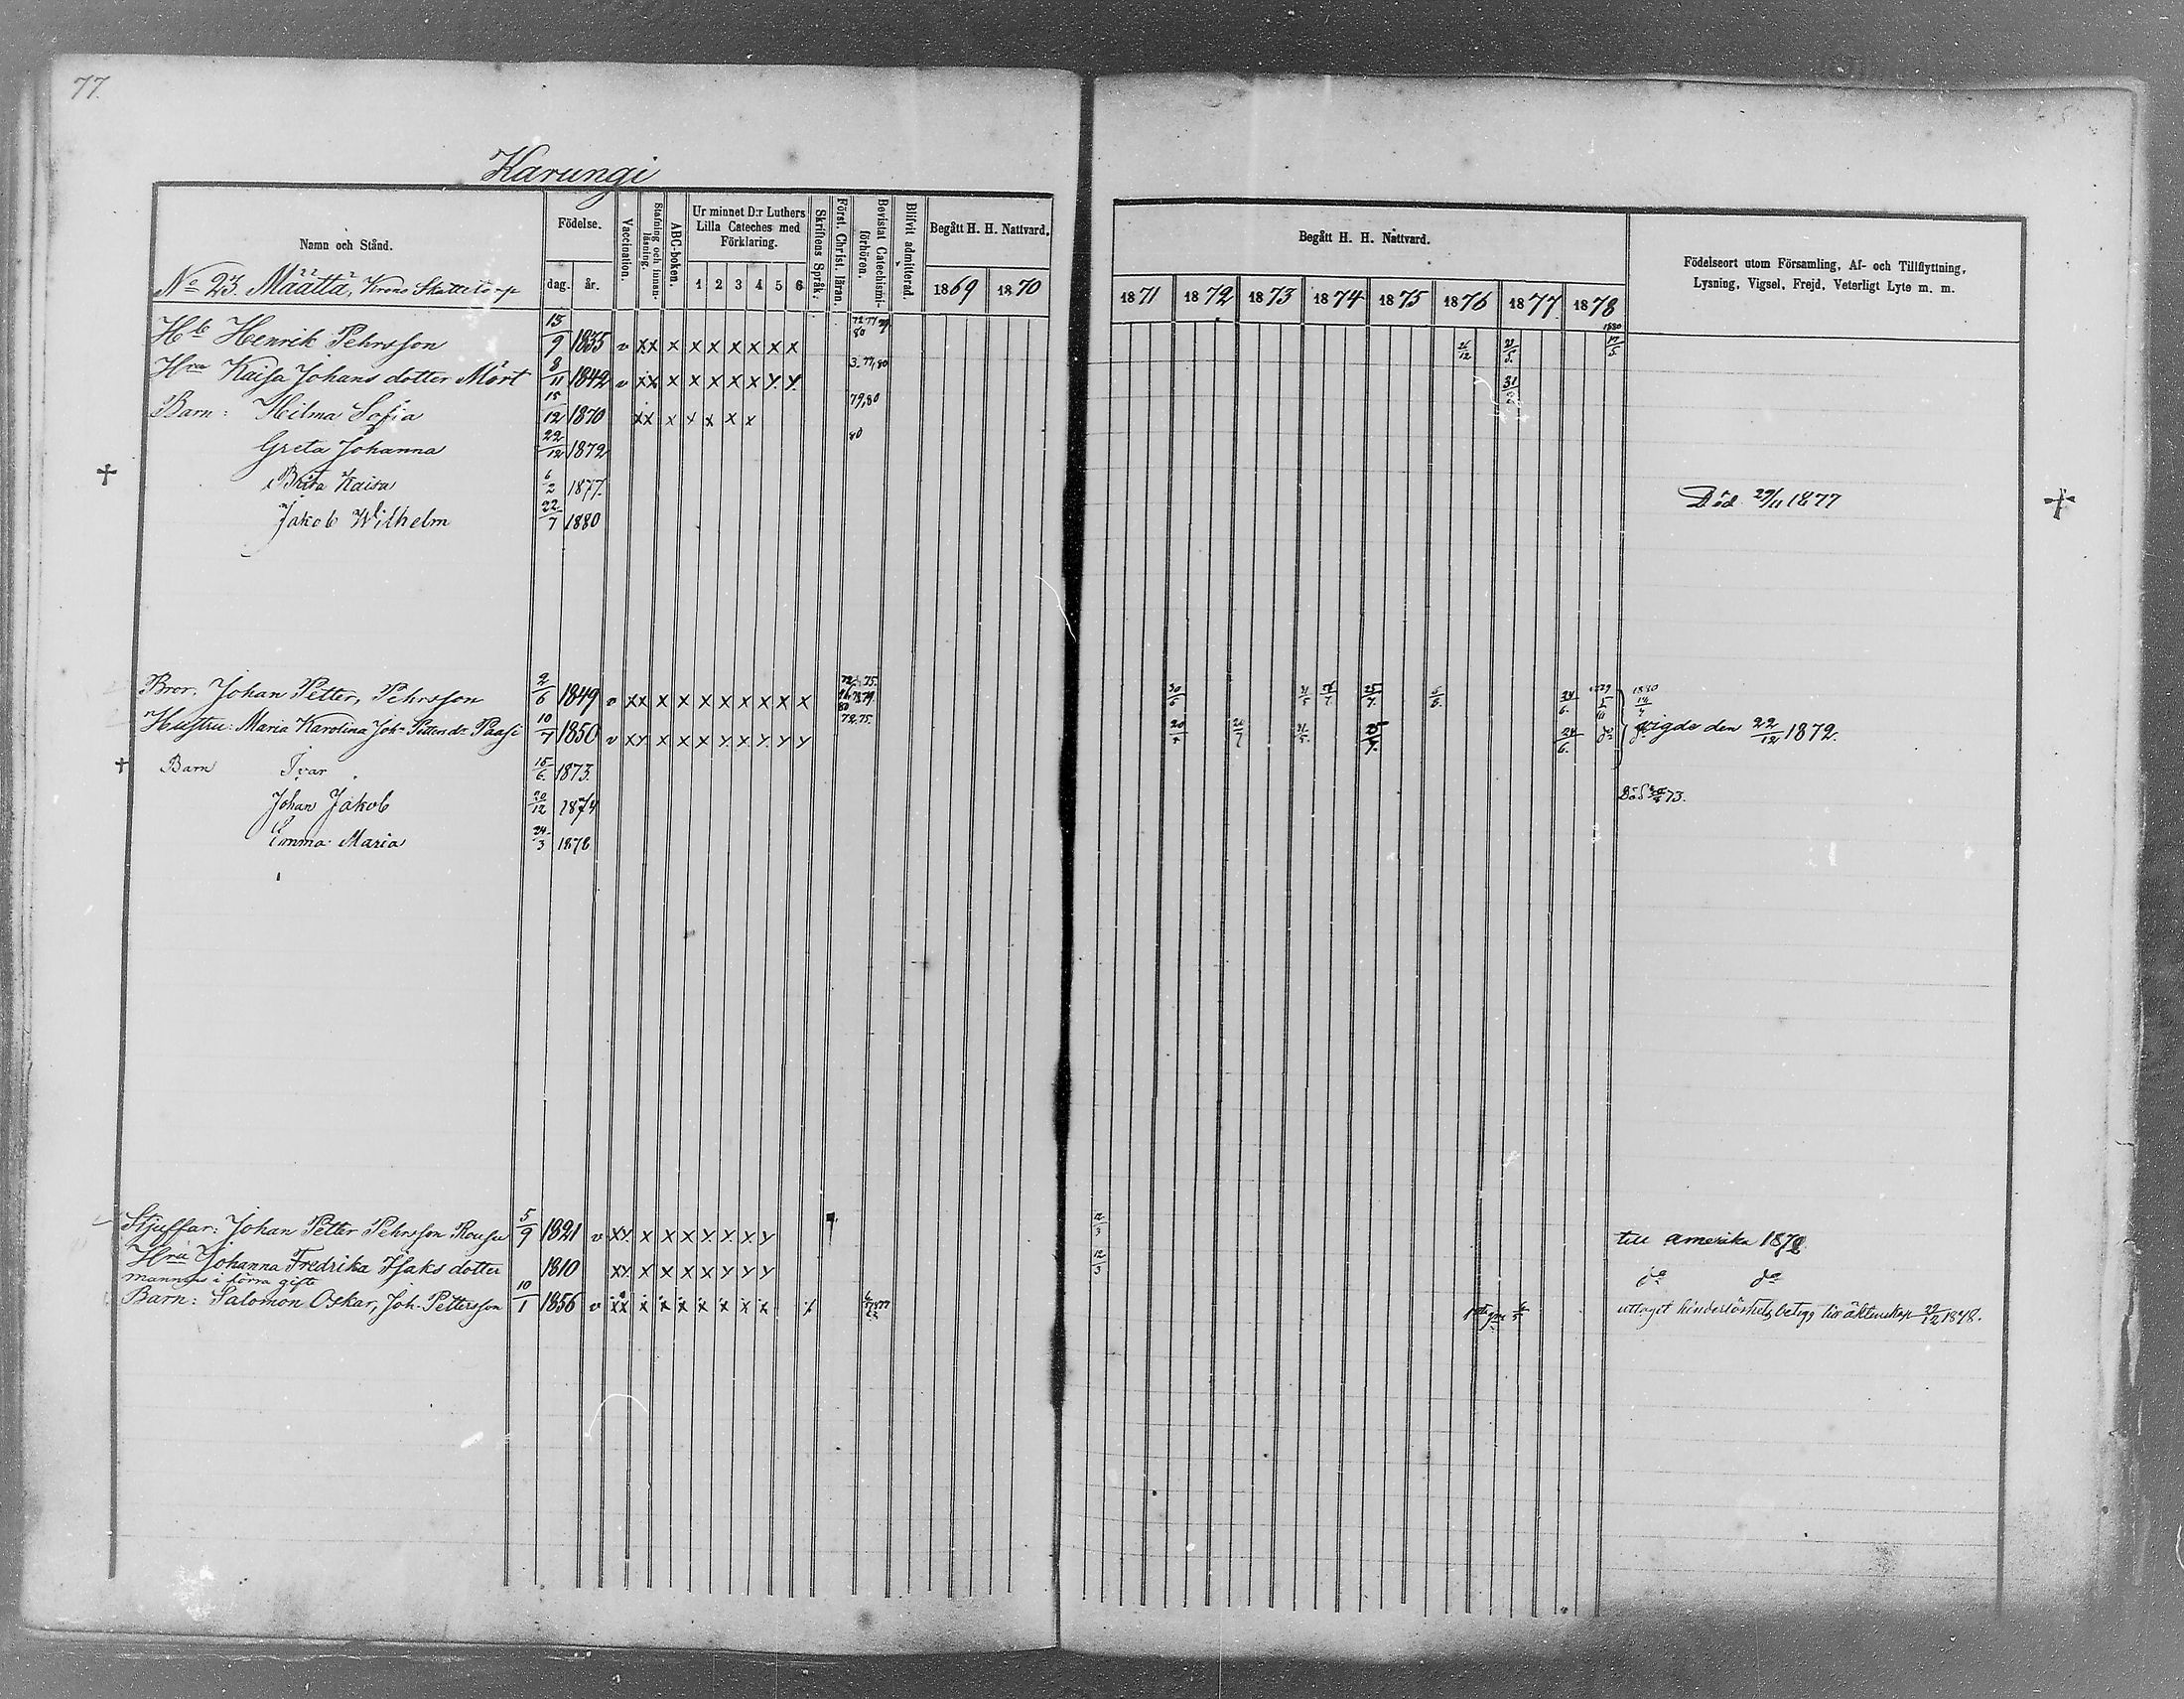 77.
Karungi
Namn och Stånd.
Födelse.
dag. år.
Vaccination.
Stafning och innanläsning.
ABC-boken.
Ur minnet D:r Luthers Lilla Cateches med Förklaring.
1 2 3 4 5 6
Skriftens Språk.
Först. Christ. läran.
Bevistat Catechismiförhören.
Blifvit admitterad.
Begått H. H. Nattvard.
1869 1870
Begått H. H. Nattvard.
1871 1872 1873 1874 1875 1876 1877 1878
Födelseort utom Församling, Af- och Tillflyttning,
Lysning, Vigsel, Frejd, Veterligt Lyte m. m.
No 23. Määttä, Krono Skattetorp
Hb Henrik Pehrsson 15/9 1835 v xx x x x x x x x 80 21/12 21/5 1880 17/5
Hru Kaisa Johans dotter Mört 8/11 1842 v xx x x x x x x x 77,80 31/5
Barn: Hilma Sofia 15/12 1870 xx x x x x x 79,80
Greta Johanna 22/12 1872 80
† Brita Kaisa 6/2 1877. Död 29/11 1877 †
Jakob Wilhelm 22/7 1880
Bror. Johan Petter, Pehrsson 2/6 1849 v xx x x x x x x x 80 25/7 24/6 1880
Hustru: Maria Karolina Joh. Petters dr Paasi 10/7 1850 v xx x x x x x x x 72.75 25/7 24/6 do vigde den 22/12 1872.
† Barn Ivar 15/6 1873. Död 73.
Johan Jakob 20/12 1874
Emma Maria 24/3 1878
Stjuffar: Johan Petter Pehrsson Rousu 5/9 1821 v xx x x x x x x x 12/3 till amerika 187
Hru Johanna Fredrika Isaks dotter 1810 xx x x x x x x x 12/3 do do
mannens i förra gifte
Barn: Salomon Oskar, Joh. Pettersson 10/1 1856 v xx x x x x x x x uttaget hinderlöshets betyg till äktenskap 22/12 1878.